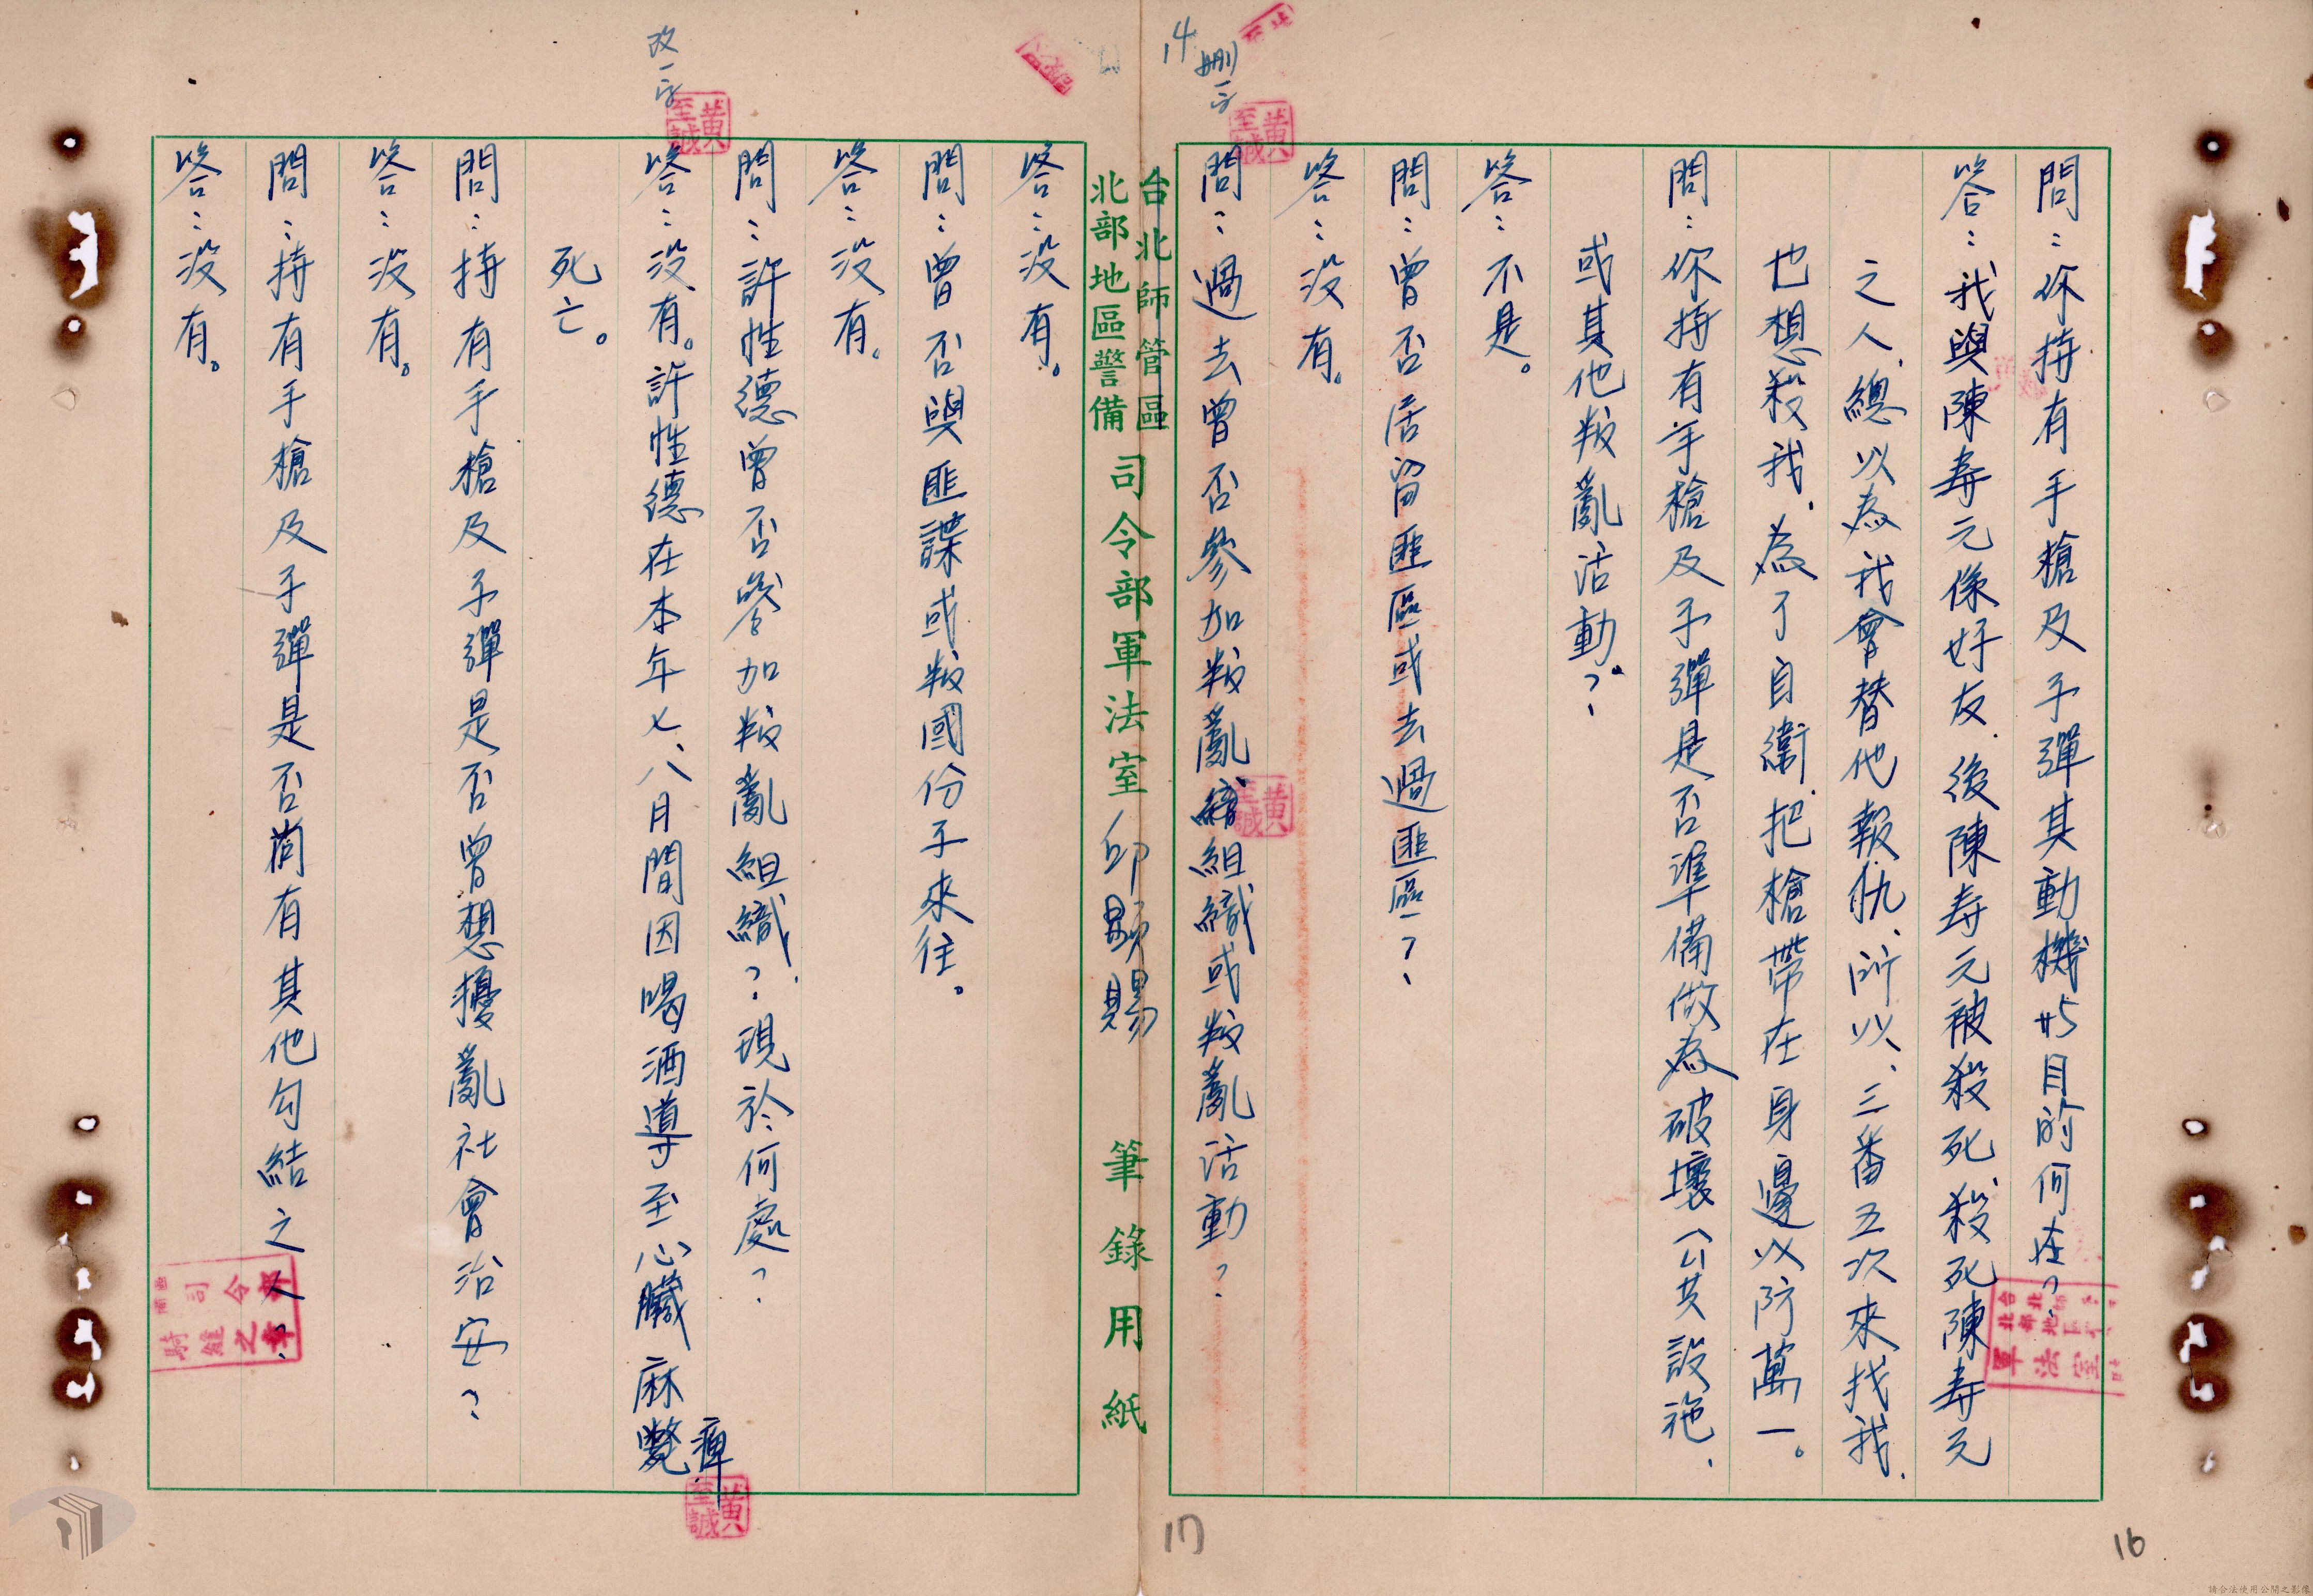 問：你持有手槍及子彈其動機與目的何在？
答：我與陳寿元係好友、後陳寿元被殺死、殺死陳寿元
之人、總以為我會替他報仇、所以、三番五次來找我、
也想殺我、為了自衛、把槍帶在身邊以防萬一。
問：你持有手槍及子彈是否準備做為破壞公共設施、
或其他叛亂活動？
答：不是。
問：曾否居留匪區或去過匪區？
答：没有。
問：過去曾否參加叛亂組織或叛亂活動？
14
刪一字
黃至誠
黃至誠
台北師管區
北部地區警備
司令部軍法室
筆錄用紙
答：没有。
問：曾否與匪諜或叛國份子來往。
答：没有。
問：許性德曾否參加叛亂組織？現於何處？
答：没有。許性德在本年七、八月間因喝酒導至心臟麻斃痺
死亡。
改一字
黃至誠
黃至誠
問：持有手槍及子彈是否曾想擾亂社會治安？
答：没有。
問：持有手槍及子彈是否尚有其他勾結之人？
答：没有。
17
16
請合法使用公開之影像